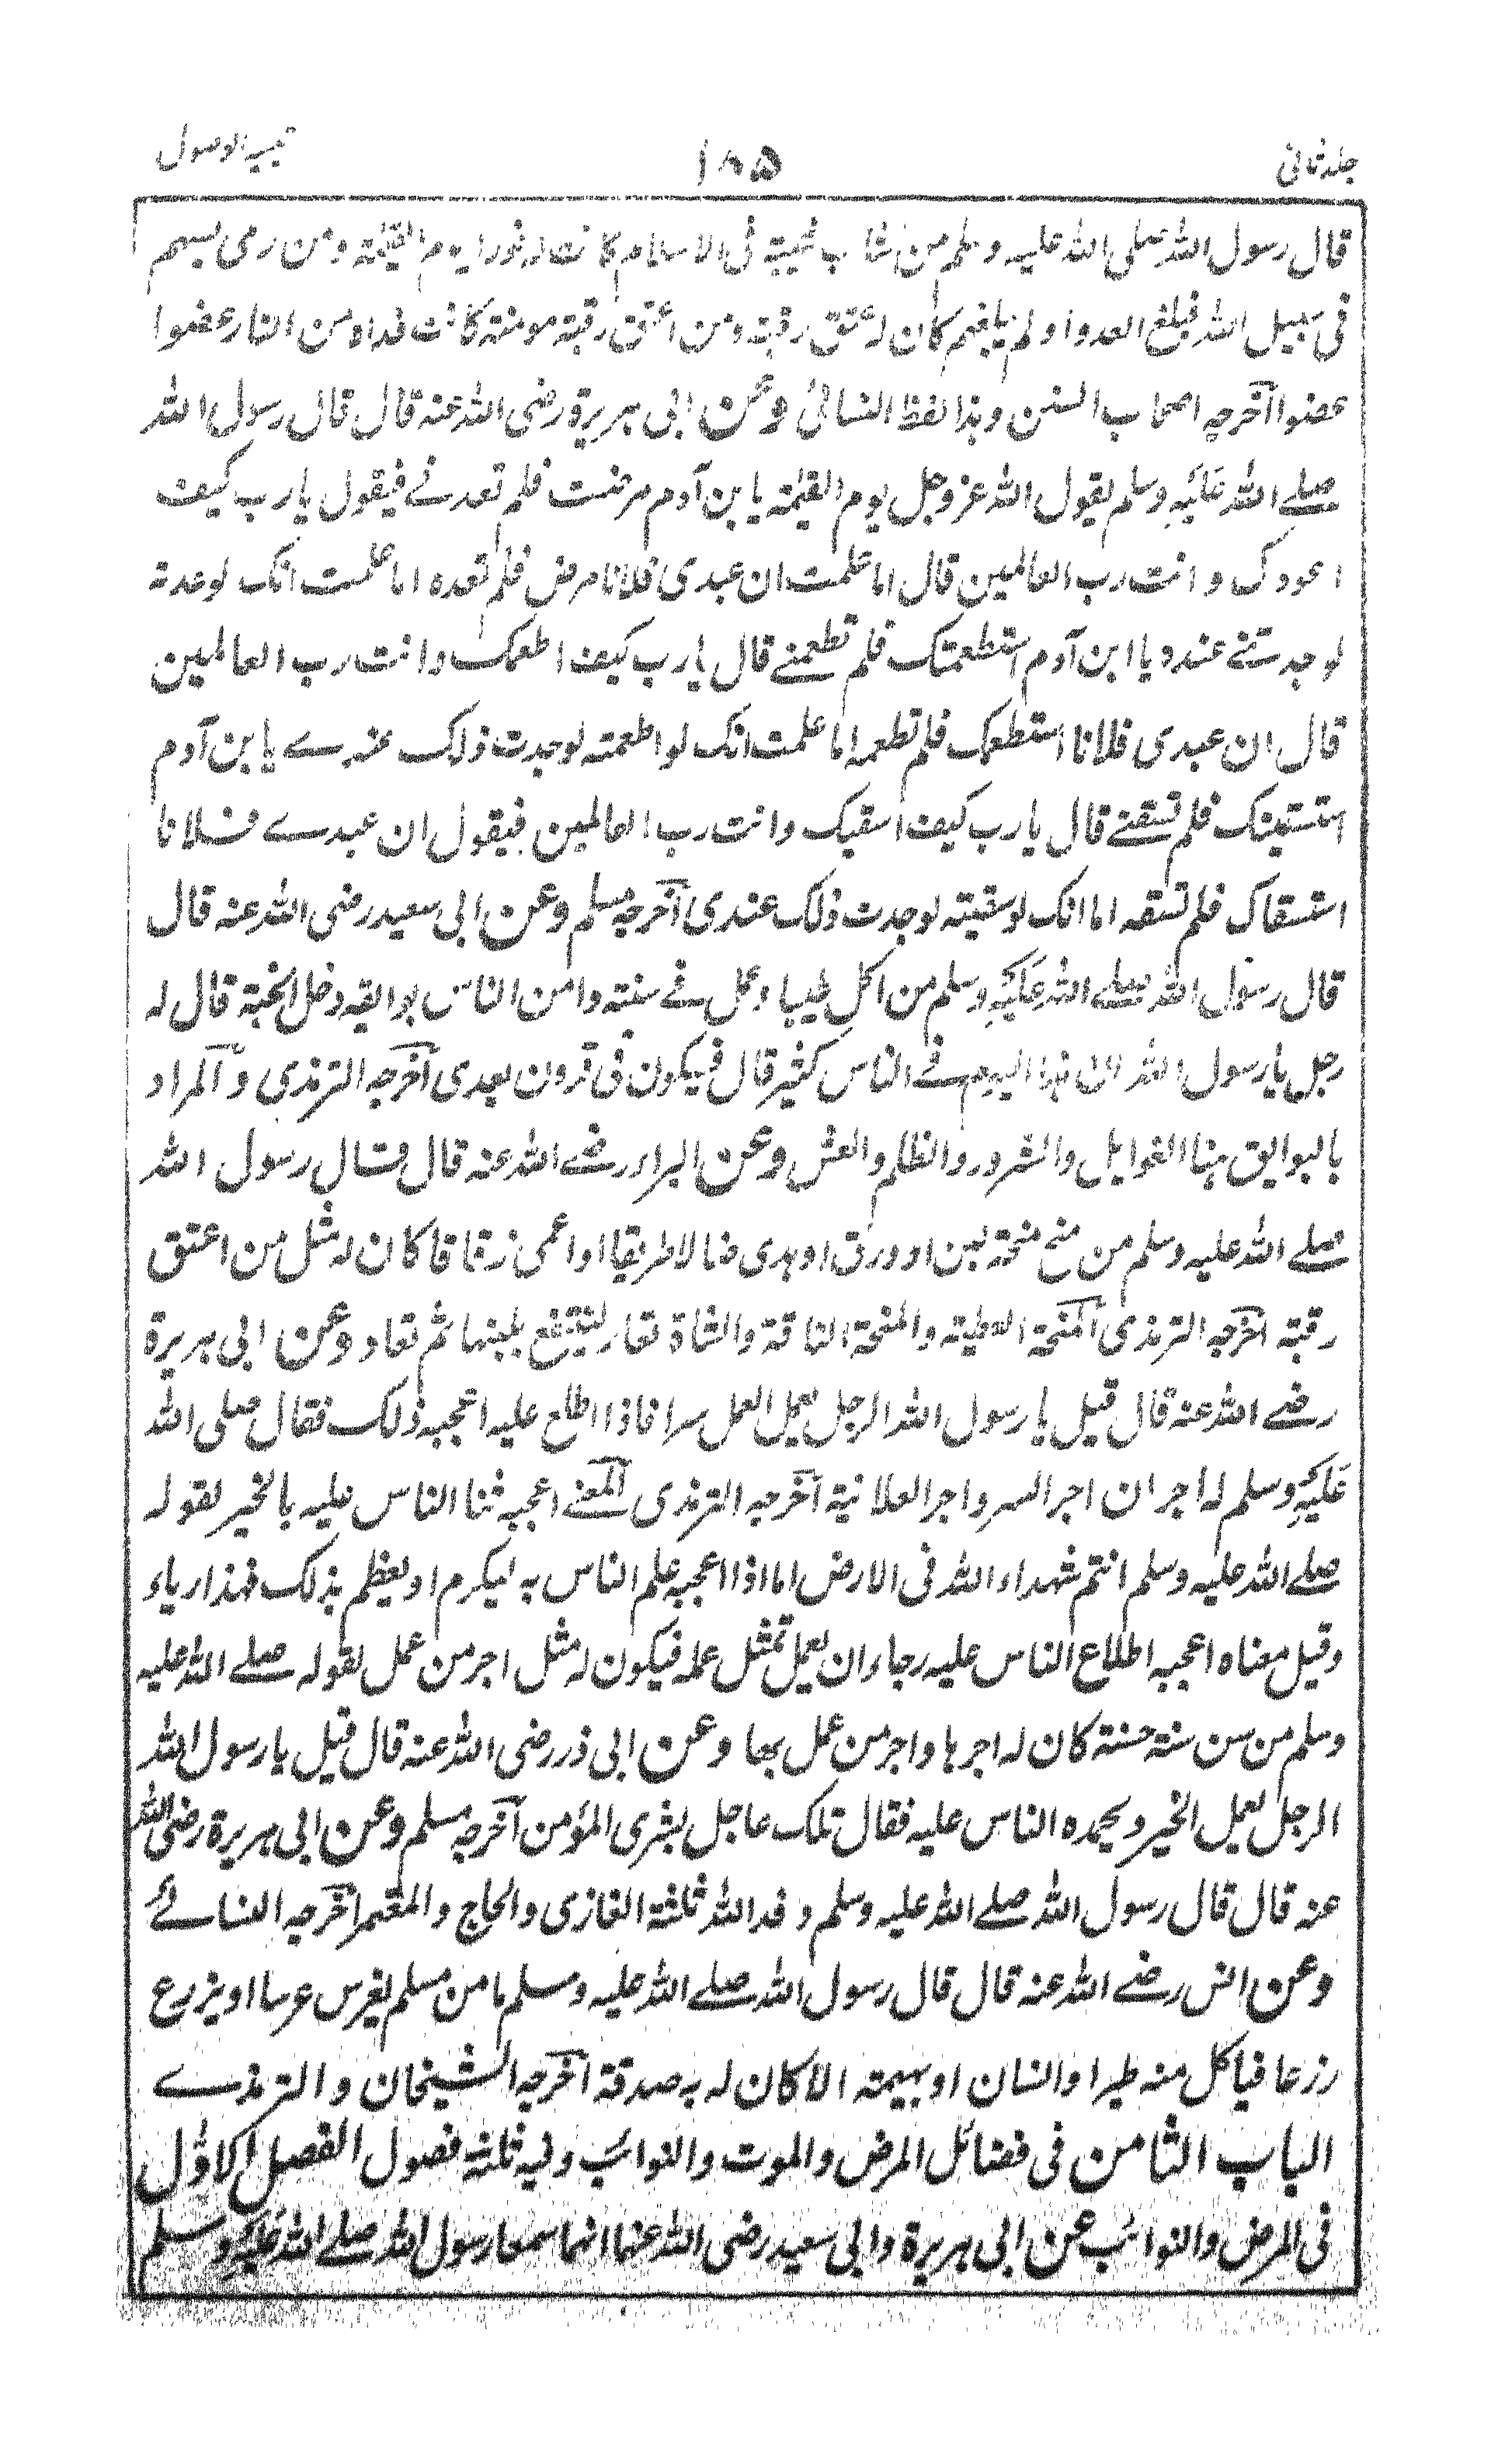 جلد ثانی ۱۸۵ تیسیر الوصول
قال رسول الله صلی الله علیه وسلم من شاب شیبة فی الاسلام کانت له نورا یوم القیٰمة ومن رمی بسهم
فی سبیل الله فبلغ العدو او لم یبلغهم کان له عتق رقبة ومن اعتق رقبة مومنة کانت فداه من النار عضوا
عضوا اخرجه اصحاب السنن وهذا لفظ النسائی وعن ابی هریرة رضی الله عنه قال قال رسول الله
صلے الله علیه وسلم یقول الله عز وجل یوم القیٰمة یا بن آدم مرضت فلم تعدنے فیقول یا رب کیف
اعودک وانت رب العالمین قال اما علمت ان عبدی فلانا مرض فلم تعده اما علمت انک لو عدته
لوجدتنے عنده یا ابن آدم استطعمتک فلم تطعمنے قال یا رب کیف اطعمک وانت رب العالمین
قال ان عبدی فلانا استطعمک فلم تطعمه اما علمت انک لو اطعمته لوجدت ذلک عندے یا بن آدم
استسقیتک فلم تسقنے قال یا رب کیف اسقیک وانت رب العالمین فیقول ان عبدے فلانا
استسقاک فلم تسقه اما انک لو سقیته لوجدت ذلک عندی اخرجه مسلم وعن ابی سعید رضی الله عنه قال
قال رسول الله صلے الله علیه وسلم من اکل طیبا وعمل فے سنة وامن الناس بوایقه دخل الجنة قال له
رجل یا رسول الله ان هذا الیوم فے الناس کثیر قال فیکون فی قرون بعدی اخرجه الترمذی والمراد
بالبوایق هنا الغوایل والشرور والظلم والغش وعن البراء رضے الله عنه قال قال رسول الله
صلے الله علیه وسلم من منح منحة لبن او ورق او هدی ضالا طریقا او اعمی زقاقا کان له مثل من اعتق
رقبة اخرجه الترمذی المنحة العطیة والمنحة الناقة والشاة تعار لینتفع بلبنها ثم تعاد وعن ابی هریرة
رضے الله عنه قال قیل یا رسول الله الرجل یعمل العمل سرا فاذا اطلع علیه اعجبه ذلک فقال صلی الله
علیه وسلم له اجران اجر السر واجر العلانیة اخرجه الترمذی المعنے اعجبه ثنا الناس علیه بالخیر لقوله
صلے الله علیه وسلم انتم شهداء الله فی الارض اما اذا اعجبه علم الناس به لیکرم او یعظم بذلک فهذا ریاء
وقیل معناه اعجبه اطلاع الناس علیه رجاء ان یعمل تمثل عمله فیکون له مثل اجر من عمل لقوله صلے الله علیه
وسلم من سن سنة حسنة کان له اجرها واجر من عمل بها وعن ابی ذر رضی الله عنه قال قیل یا رسول الله
الرجل یعمل الخیر ویحمده الناس علیه فقال تلک عاجل بشری المؤمن اخرجه مسلم وعن ابی هریرة رضی الله
عنه قال قال رسول الله صلے الله علیه وسلم وفد الله ثلثة الغازی والحاج والمعتمر اخرجه النسائے
وعن انس رضے الله عنه قال قال رسول الله صلے الله علیه وسلم ما من مسلم یغرس غرسا او یزرع
زرعا فیاکل منه طیرا وانسان او بهیمة الا کان له به صدقة اخرجه الشیخان والترمذے
الباب الثامن فی فضائل المرض والموت والنوائب وفیه ثلثة فصول الفصل الاول
فی المرض والنوائب عن ابی هریرة وابی سعید رضی الله عنهما انهما سمعا رسول الله صلے الله علیه وسلم